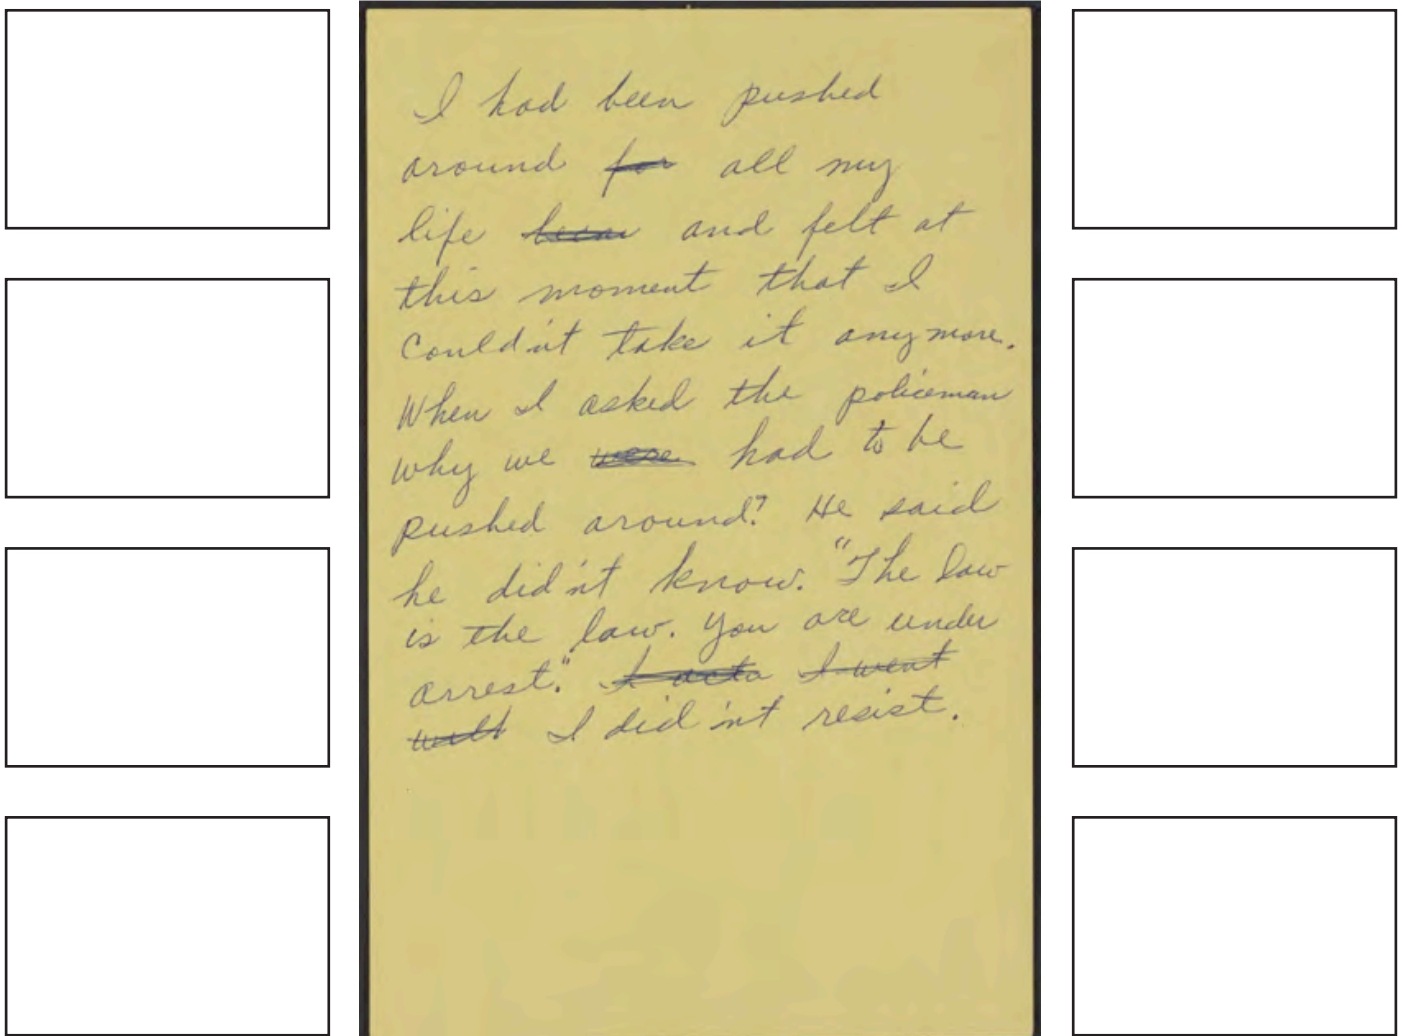 I had been pushed
around for all my
life and felt at
this moment that I
couldn't take it anymore.
When I asked the policeman
why we were had to be
pushed around? He said
he did'nt know. "The law
is the law. You are under
arrest." I went
I did'nt resist.